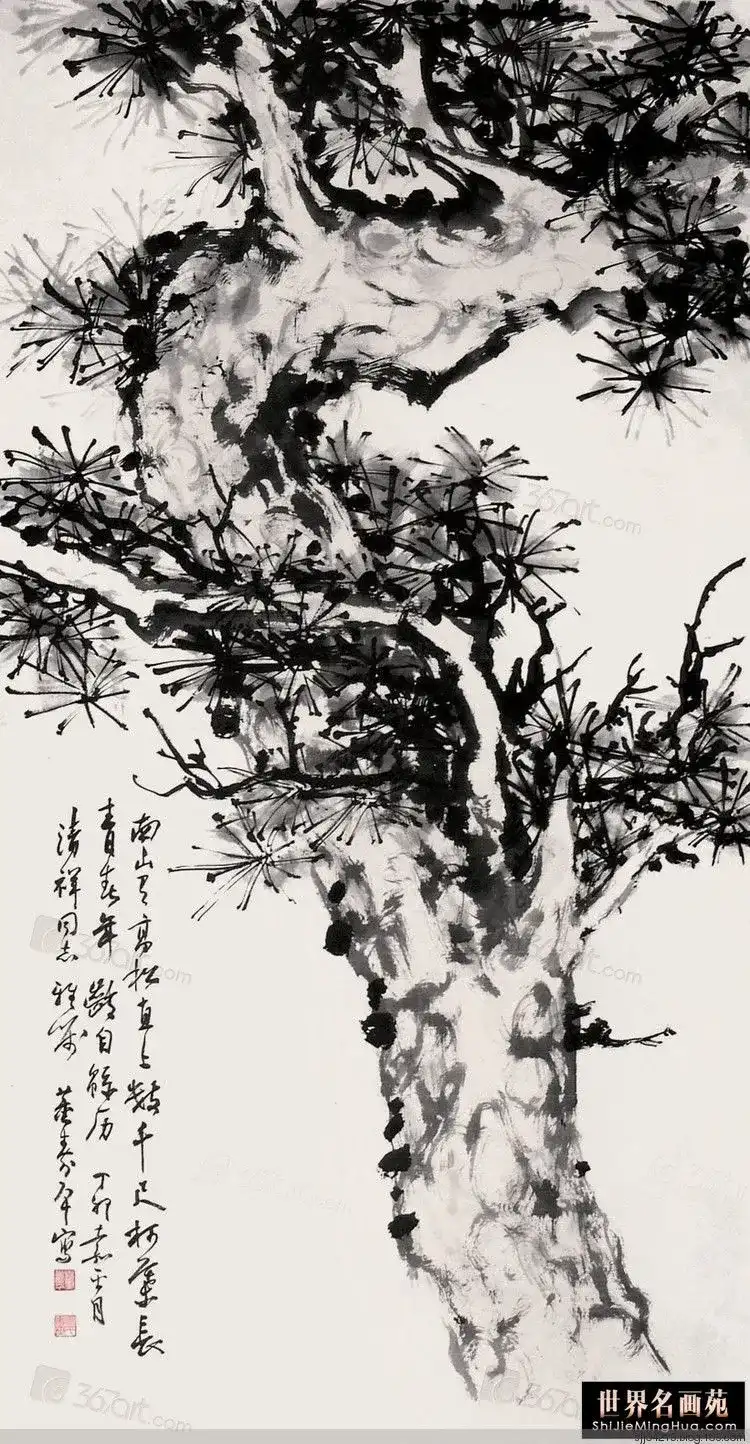 南山有高松直上数千尺柯叶长
青春年龄自绵历 丁卯嘉平月
清祥同志雅嘱 董寿平写
367art.com
367art.com
367art.com
367art.com
世界名画苑
ShiJieMingHua.com